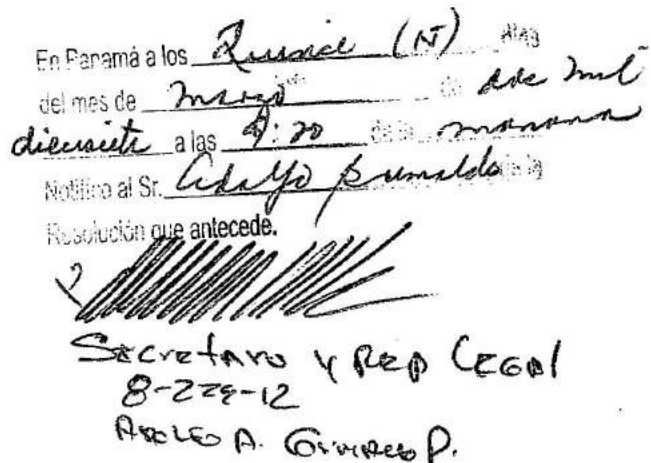 En Panamá a los Quince (15) días
del mes de marzo de dos mil
diecisiete a las 9:20 de la manana
Notifico al Sr. Adolfo de la
Resolución que antecede.
Secretario y Rep Legal
8-229-12
A. P.